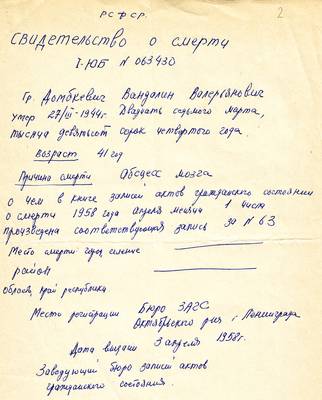 РСФСР.
2
Свидетельство о смерти
I-ЮБ N 063430
Гр. Домбкевич Вандалин Валерьянович
умер 27/III-1944г. Двадцать седьмого марта,
тысяча девятьсот сорок четвертого года.
Возраст 41 год
Причина смерти Абсцесс мозга
О чем в книге записей актов гражданского состояния
о смерти 1958 года апреля месяца 1 числа
произведена соответствующая запись за N 63
Место смерти: город, селение
район
Область, край республика.
Место регистрации Бюро ЗАГС
Октябрьского р-на г. Ленинграда
Дата выдачи 3 апреля 1958г.
Заведующий бюро записей актов
гражданского состояния.